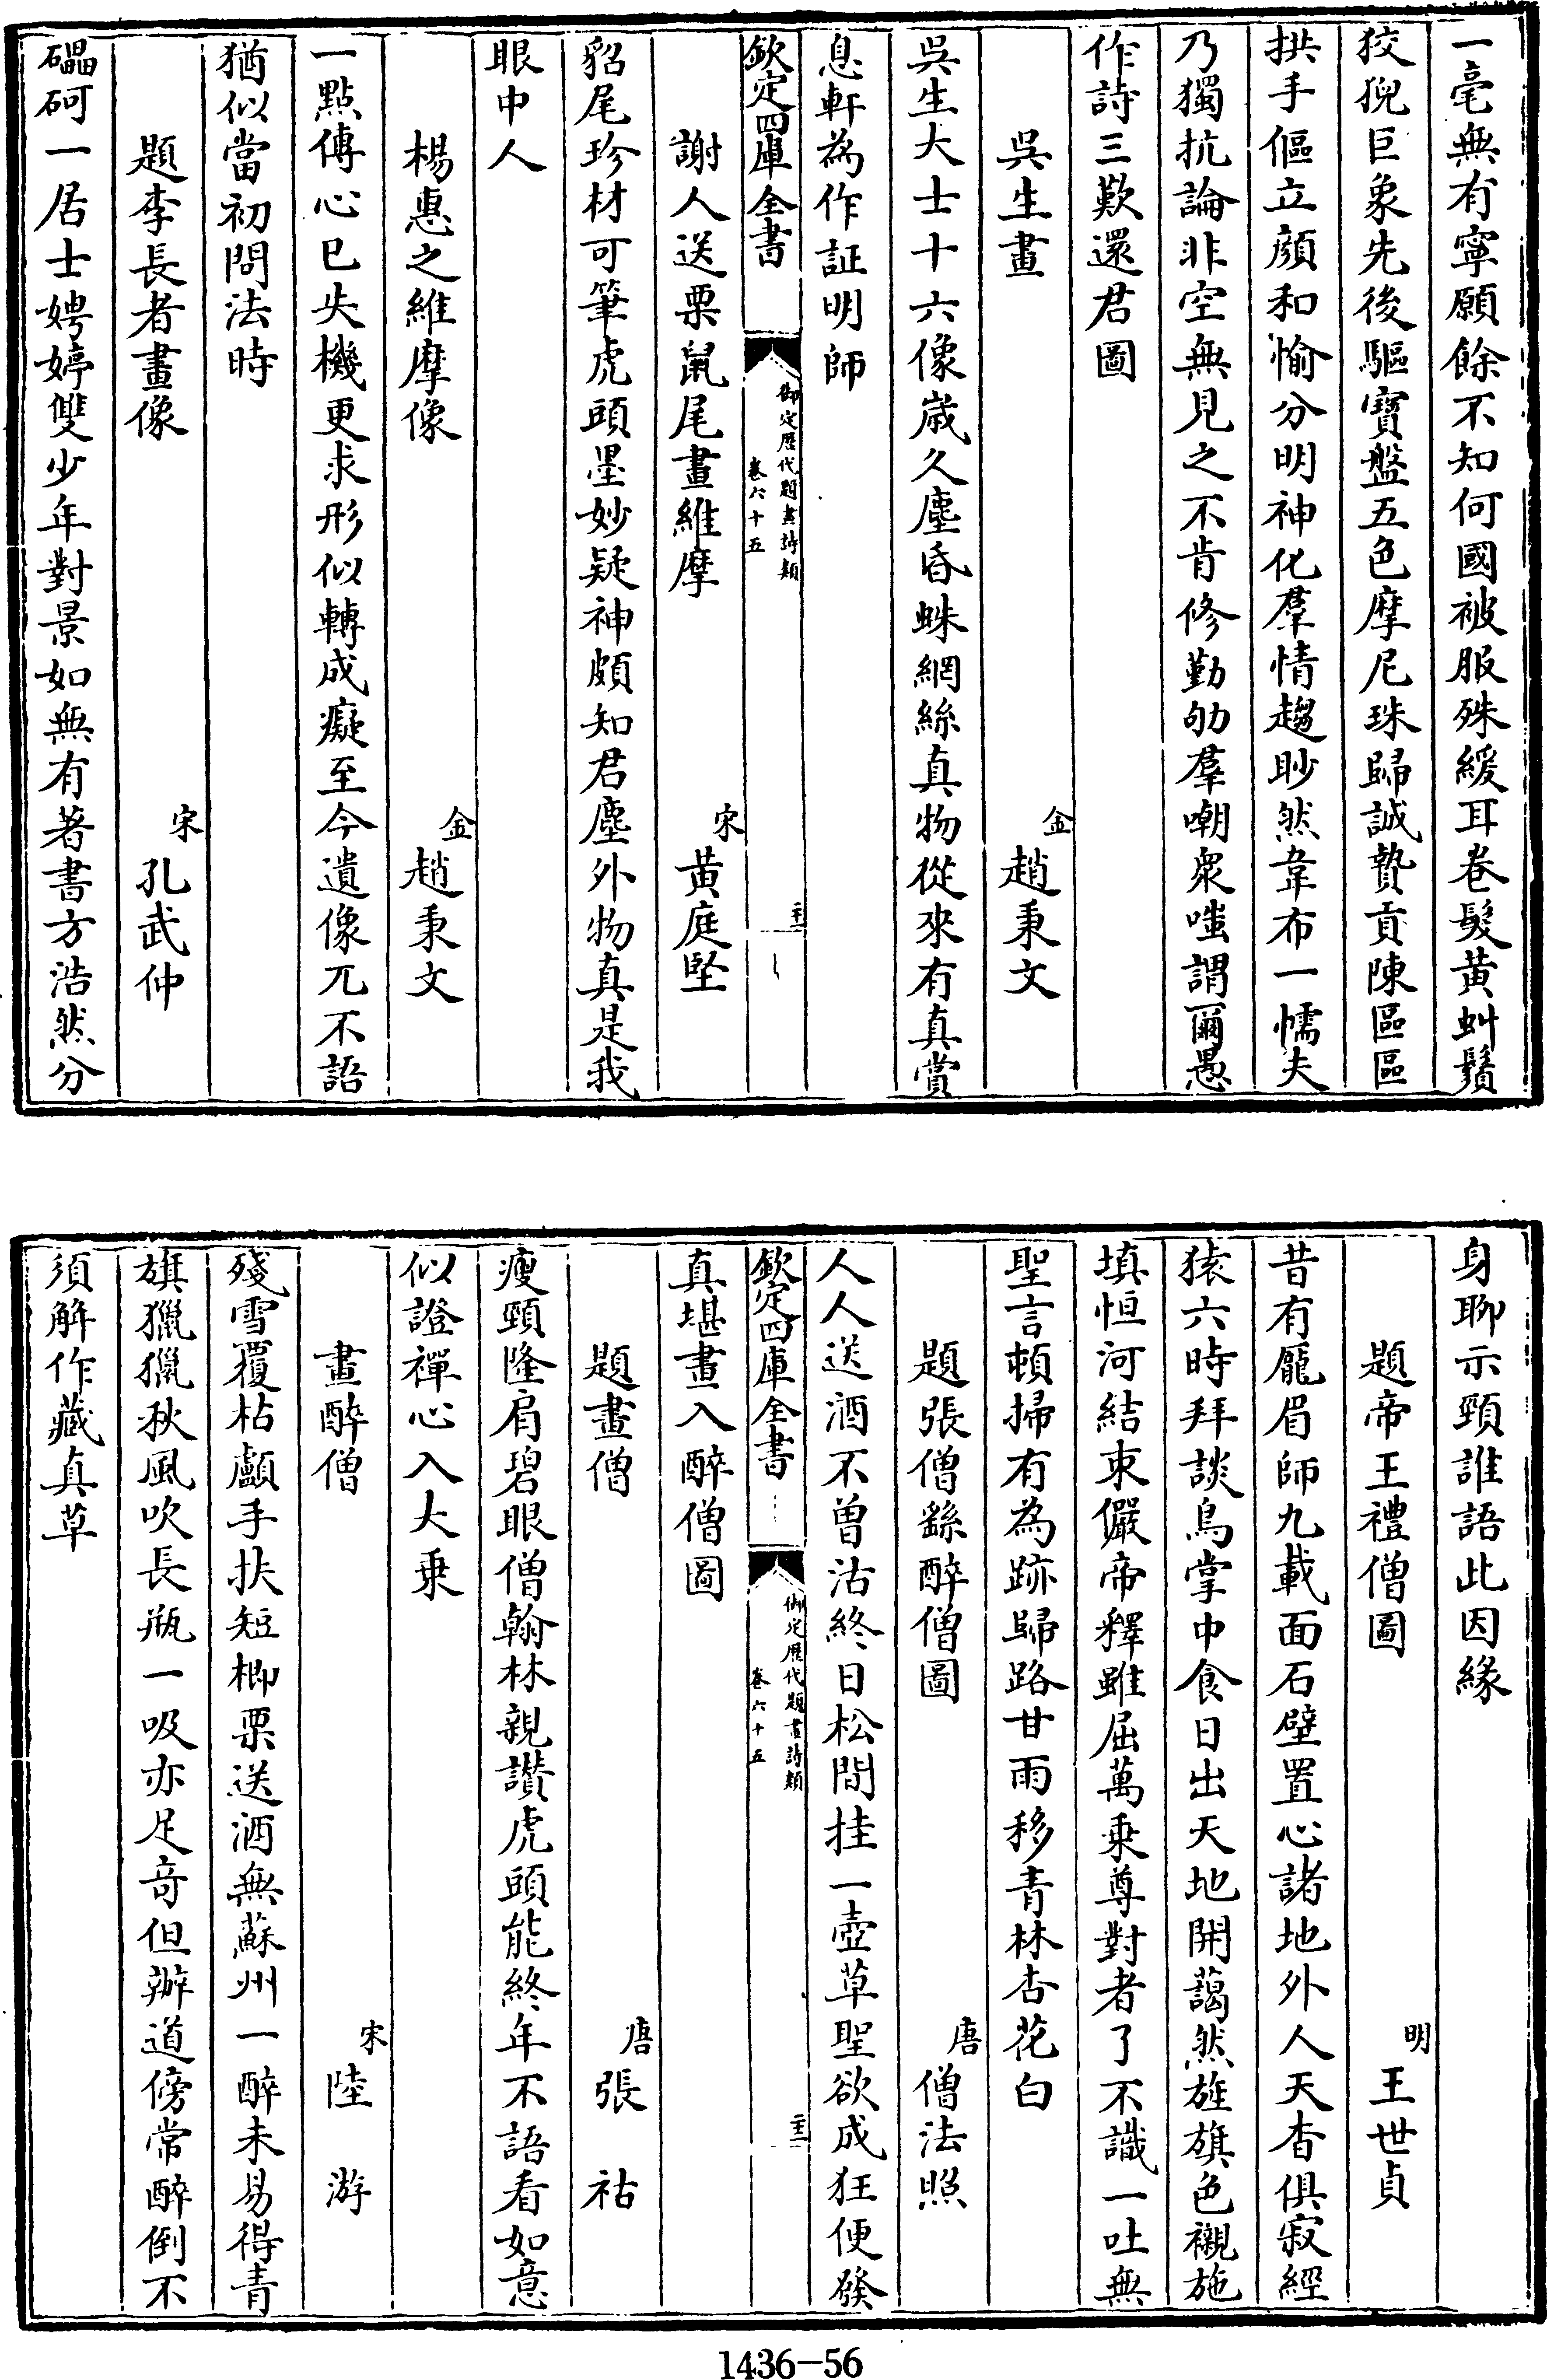 一毫無有寧願餘不知何國被服殊緩耳卷髮黄虯鬚
狡猊巨象先後驅寶盤五色摩尼珠歸誠贄貢陳區區
拱手傴立顔和愉分明神化羣情趨眇然韋布一懦夫
乃獨抗論非空無見之不肯修勤劬羣嘲衆嗤謂爾愚
作詩三歎還君圖
吳生畫
金趙秉文
吳生大士十六像歳久塵昏蛛網絲真物從來有真賞
息軒為作証明師
欽定四庫全書
御定歴代題畫詩類
卷六十五
謝人送栗鼠尾畫維摩
宋黄庭堅
貂尾珍材可筆虎頭墨妙疑神頗知君塵外物真是我
眼中人
楊惠之維摩像
金趙秉文
一點傳心已失機更求形似轉成癡至今遺像兀不語
猶似當初問法時
題李長者畫像
宋孔武仲
礧砢一居士娉婷雙少年對景如無有著書方浩然分
身聊示頸誰語此因緣
題帝王禮僧圖
明王世貞
昔有龎眉師九載面石壁置心諸地外人天杳俱寂經
猿六時拜談鳥掌中食日出天地開藹然旌旗色襯施
填恒河結束儼帝釋雖屈萬乗尊對者了不識一吐無
聖言頓掃有為跡歸路甘雨移青林杏花白
題張僧繇醉僧圖
唐僧法照
人人送酒不曽沽終日松間挂一壺草聖欲成狂便發
欽定四庫全書
御定歴代題畫詩類
卷六十五
真堪畫入醉僧圖
題畫僧
唐張祜
瘦頸隆肩碧眼僧翰林親讃虎頭能終年不語看如意
似證禪心入大乗
畫醉僧
宋陸游
殘雪覆枯顱手扶短楖栗送酒無蘇州一醉未易得青
旗獵獵秋風吹長瓶一吸亦足竒但辦道傍常醉倒不
須解作藏真草
1436—56